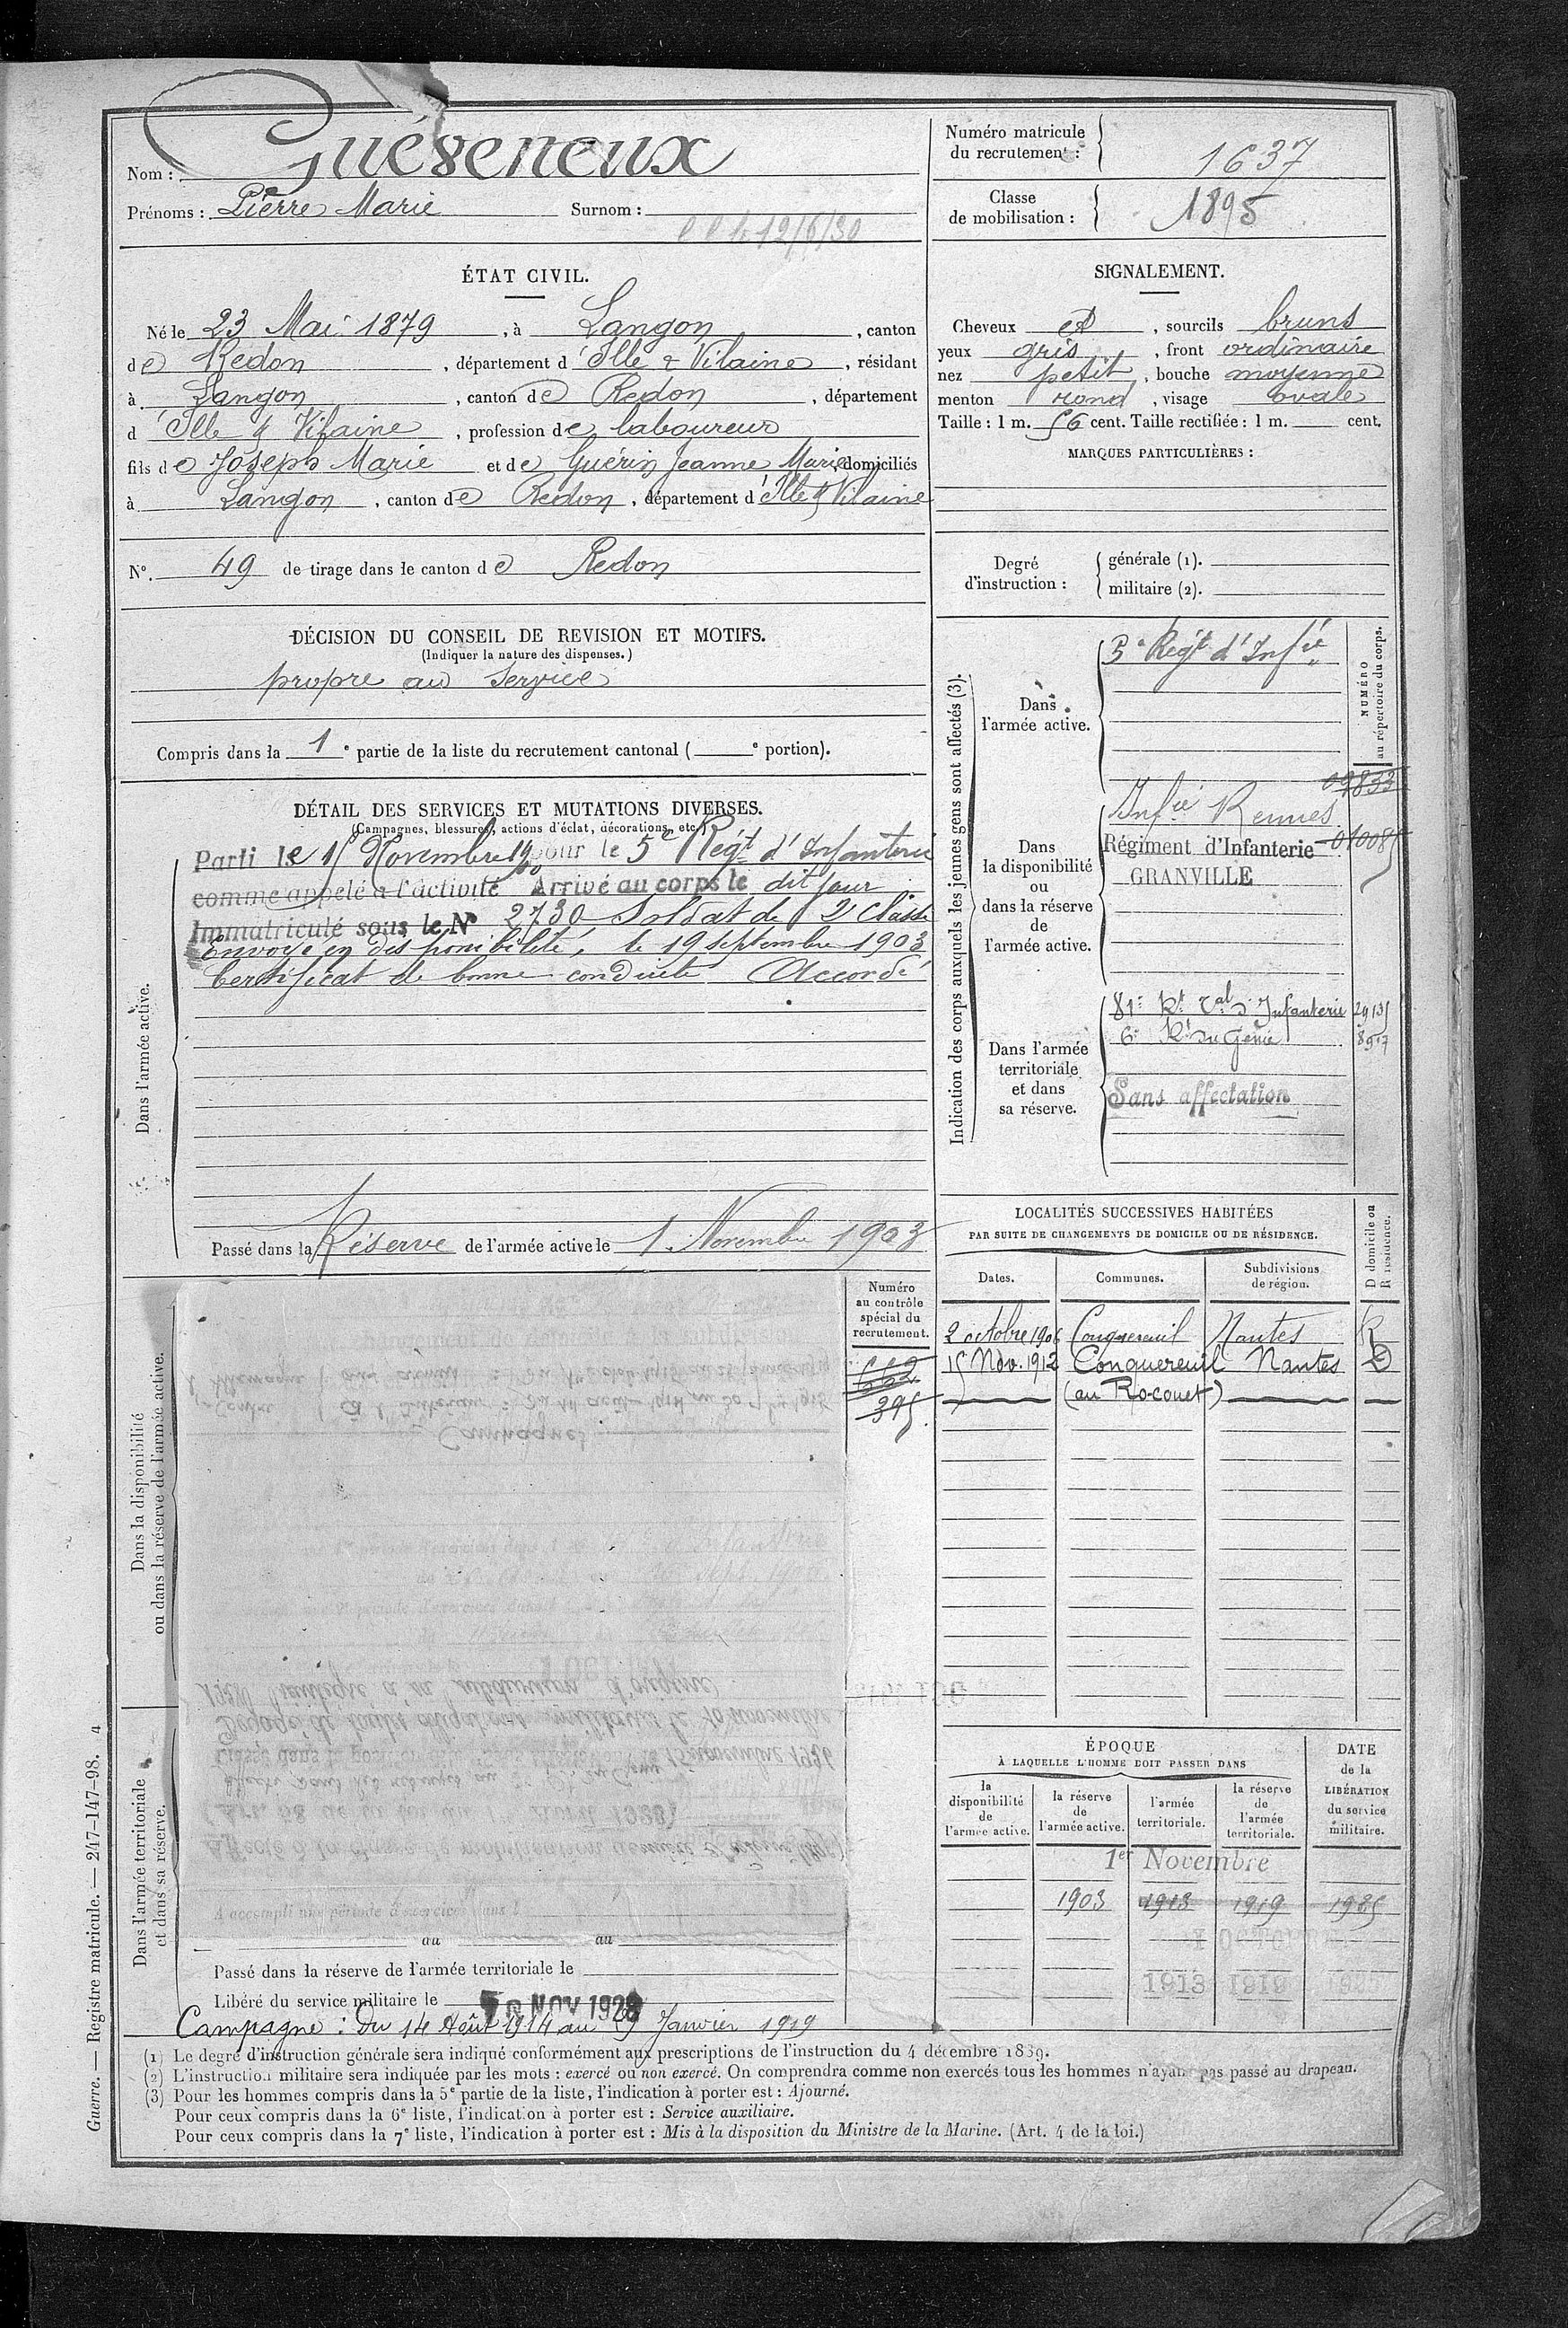 Nom : Guéseneux
Prénoms : Pierre Marie Surnom :
12/6/30
Numéro matricule du recrutement : 1637
Classe de mobilisation : 1895
ÉTAT CIVIL.
Né le 23 Mai 1879, à Langon, canton
de Redon, département d'Ille & Vilaine, résidant
à Langon, canton de Redon, département
d'Ille & Vilaine, profession de laboureur
fils de Joseph Marie et de Guérin Jeanne Marie domiciliés
à Langon, canton de Redon, département d'Ille & Vilaine
N° 49 de tirage dans le canton de Redon
SIGNALEMENT.
Cheveux et, sourcils bruns
yeux gris, front ordinaire
nez petit, bouche moyenne
menton rond, visage ovale
Taille : 1 m. 56 cent. Taille rectifiée : 1 m. cent.
MARQUES PARTICULIÈRES :
Degré d'instruction : générale (1).
militaire (2).
DÉCISION DU CONSEIL DE REVISION ET MOTIFS.
(Indiquer la nature des dispenses.)
propre au service
Compris dans la 1e partie de la liste du recrutement cantonal ( e portion).
DÉTAIL DES SERVICES ET MUTATIONS DIVERSES.
(Campagnes, blessures, actions d'éclat, décorations, etc.)
Dans l'armée active.
Parti le 15 Novembre 1900 pour le 5e Régt d'Infanterie
comme appelé à l'activité Arrivé au corps le dit jour
Immatriculé sous le N° 2730 Soldat de 2e Classe
Envoyé en disponibilité, le 19 septembre 1903
Certificat de bonne conduite Accordé
Passé dans la Réserve de l'armée active le 1 Novembre 1903
Indication des corps auxquels les jeunes gens sont affectés (3).
NUMÉRO au répertoire du corps.
Dans l'armée active.
5e Régt d'Infie
Dans la disponibilité ou dans la réserve de l'armée active.
Infie Rennes 09833
Régiment d'Infanterie 010085
GRANVILLE
Dans l'armée territoriale et dans sa réserve.
81e Rt Tal d'Infanterie 29135
6e Rt du Génie 8917
Sans affectation
LOCALITÉS SUCCESSIVES HABITÉES
PAR SUITE DE CHANGEMENTS DE DOMICILE OU DE RÉSIDENCE.
Dates. Communes. Subdivisions de région. D domicile ou R résidence.
2 octobre 1906 Conquereuil Nantes R
15 Nov. 1912 Conquereuil Nantes D
(au Rocouet)
Dans la disponibilité ou dans la réserve de l'armée active.
Numéro au contrôle spécial du recrutement.
662
395
Campagnes
changement de domicile à la subdivision
Dégagé de toutes obligations militaires le 10 novembre
Dans l'armée territoriale et dans sa réserve.
A accompli une période d'exercices dans l
du au
Passé dans la réserve de l'armée territoriale le
Libéré du service militaire le 10 NOV 1928
Campagne : Du 14 Août 1914 au 29 Janvier 1919
ÉPOQUE
À LAQUELLE L'HOMME DOIT PASSER DANS
la disponibilité de l'armée active.
la réserve de l'armée active.
l'armée territoriale.
la réserve de l'armée territoriale.
DATE de la LIBÉRATION du service militaire.
1er Novembre
1903 1913 1919 1925
1 OCTOBRE
1913 1919
(1) Le degré d'instruction générale sera indiqué conformément aux prescriptions de l'instruction du 4 décembre 1889.
(2) L'instruction militaire sera indiquée par les mots : exercé ou non exercé. On comprendra comme non exercés tous les hommes n'ayant pas passé au drapeau.
(3) Pour les hommes compris dans la 5e partie de la liste, l'indication à porter est : Ajourné.
Pour ceux compris dans la 6e liste, l'indication à porter est : Service auxiliaire.
Pour ceux compris dans la 7e liste, l'indication à porter est : Mis à la disposition du Ministre de la Marine. (Art. 4 de la loi.)
Guerre. — Registre matricule. — 247-147-98. 4